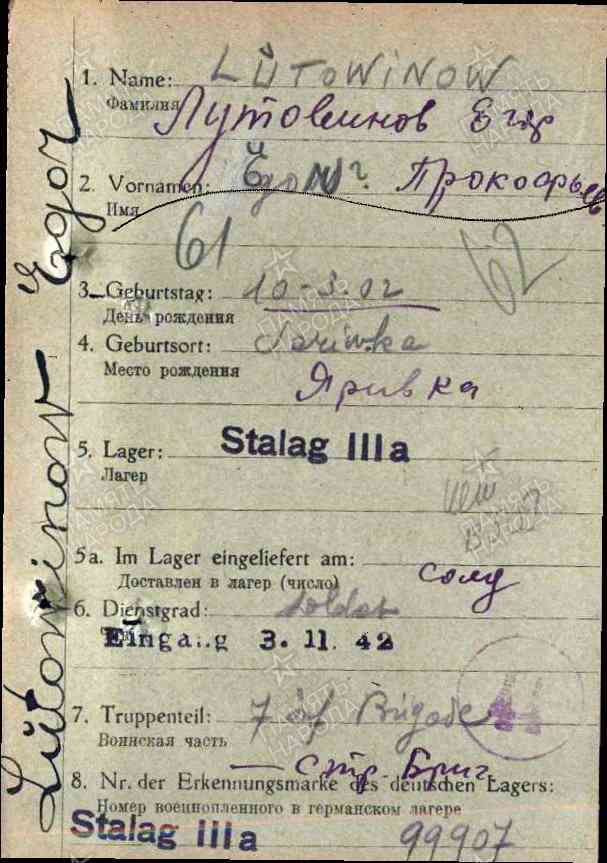 1. Name: LÜTOWINOW
Фамилия Лутовинов Егор
2. Vornamen: Прокофьев
Имя
61
62
3. Geburtstag: 10-3.02
День рождения
4. Geburtsort: Jariwka
Место рождения Яривка
5. Lager: Stalag IIIa
Лагер
5a. Im Lager eingeliefert am:
Доставлен в лагер (число) солд
6. Dienstgrad: Soldat
Eingang 3. 11. 42
7. Truppenteil: 7 Brigade
Воинская часть
— стр. Бриг.
8. Nr. der Erkennungsmarke des deutschen Lagers:
Номер военнопленного в германском лагере
Stalag IIIa 99907
Lütowinow Egor
ПАМЯТЬ НАРОДА